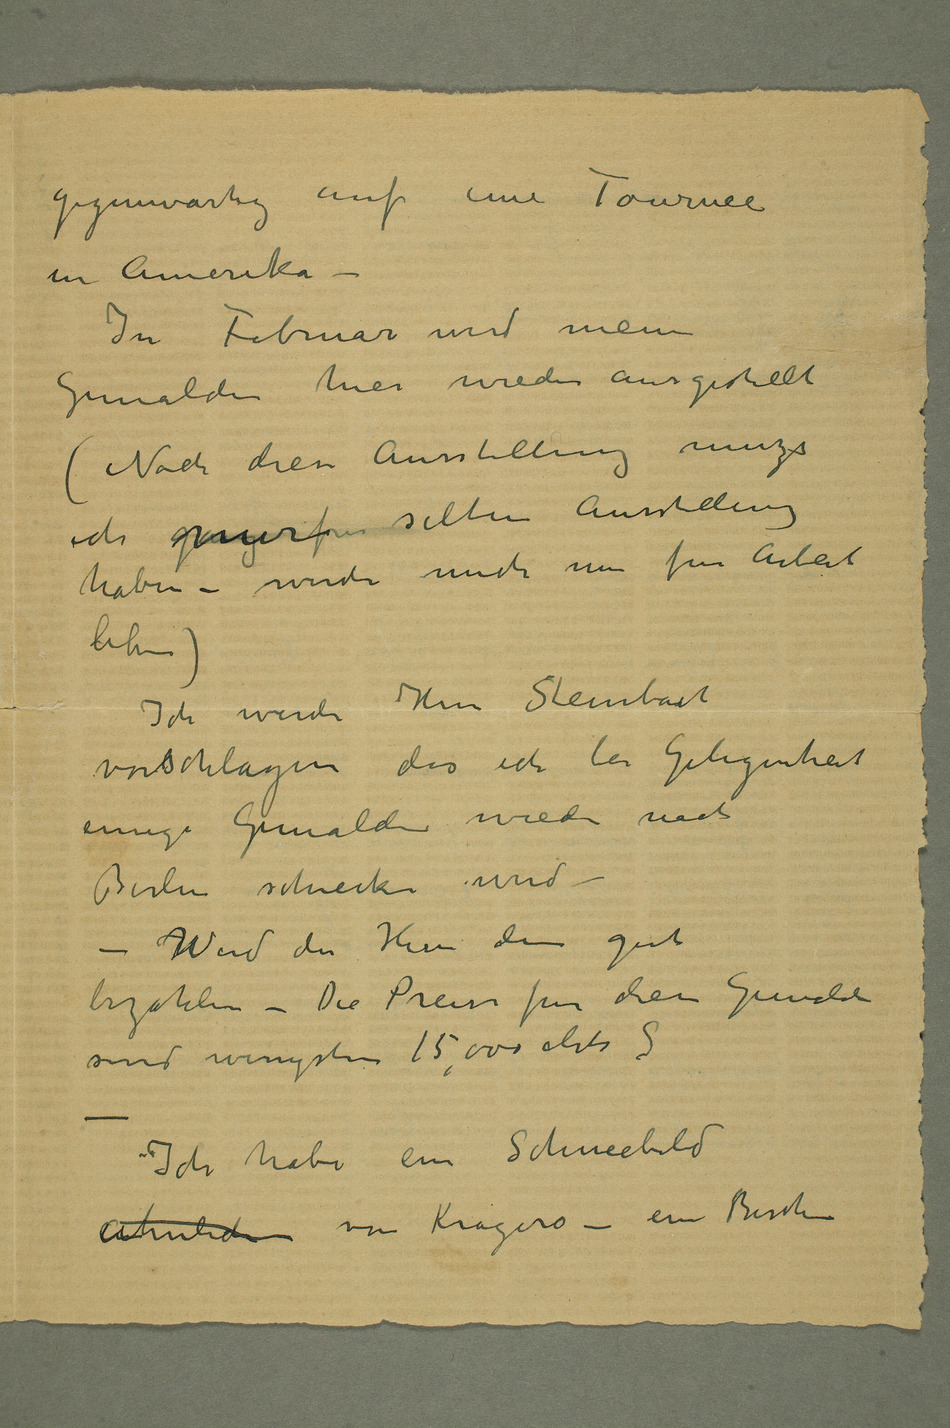 gegenwärtig auf eine Tournee
in Amerika –
In Februar wird meine
Gemälden hier wieder ausgestellt
(Nach diese Ausstellung muzs
ich selten Ausstellung
haben – werde mich nur für Arbeit
leben)
Ich werde Herr Steinbart
vorschlagen das ich bei Gelegenheit
einige Gemälden wieder nach
Berlin schicken wird –
– Wird der Herr dem gut
bezahlen – Die Preise für diese Gemälde
sind wenigstens 15,000 dito §
—
Ich habe ein Schneebild
ähnlichen von Kragerø – ein Bischen